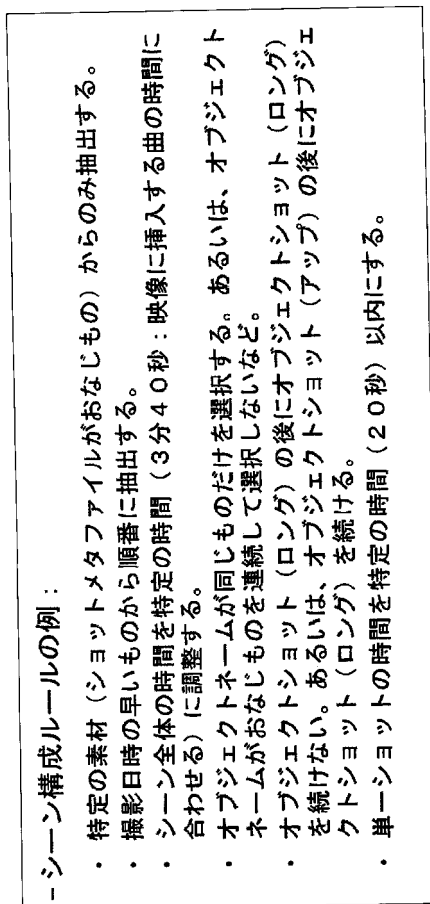 －シーン構成ルールの例：
・ 特定の素材（ショットメタファイルがおなじもの）からのみ抽出する。
・ 撮影日時の早いものから順番に抽出する。
・ シーン全体の時間を特定の時間（３分４０秒：映像に挿入する曲の時間に
合わせる）に調整する。
・ オブジェクトネームが同じものだけを選択する。あるいは、オブジェクト
ネームがおなじものを連続して選択しないなど。
・ オブジェクトショット（ロング）の後にオブジェクトショット（ロング）
を続けない。あるいは、オブジェクトショット（アップ）の後にオブジェ
クトショット（ロング）を続ける。
・ 単一ショットの時間を特定の時間（２０秒）以内にする。